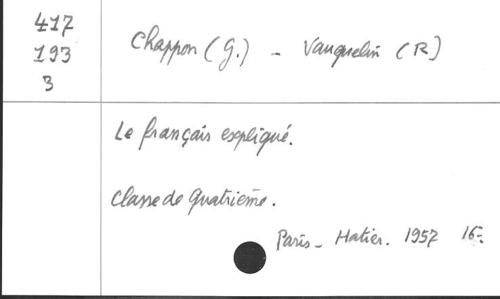 417
193
3
Chappon (G.) - Vauquelin (R)
Le français expliqué.
Classe de Quatrième.
Paris - Hatier. 1957 16-